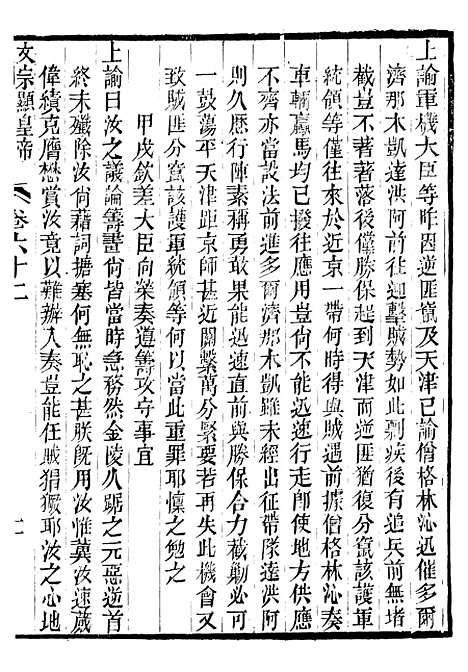 上諭軍機大臣等昨因逆匪竄及天津已諭僧格林沁迅催多爾
濟那木凱達洪阿前往迎擊賊勢如此剽疾後有追兵前無堵
截豈不著著落後僅勝保趕到天津而逆匪猶復分竄該護軍
統領等僅往來於近京一帶何時得與賊遇前據僧格林沁奏
車輛羸馬均已撥往應用豈尚不能迅速行走卽使地方供應
不齊亦當設法前進多爾濟那木凱雖未經出征帶隊達洪阿
則久歷行陣素稱勇敢果能迅速直前與勝保合力截勦必可
一鼓蕩平天津距京師甚近關繫萬分緊要若再失此機會又
致賊匪分竄該護軍統領等何以當此重罪耶懍之勉之
甲戌欽差大臣向榮奏遵籌攻守事宜
上諭曰汝之議論籌畫尚皆當時急務然金陵久踞之元惡逆首
終未殲除汝尚藉詞搪塞何無恥之甚朕旣用汝惟冀汝速蕆
偉績克膺懋賞汝竟以難辦入奏豈能任賊猖獗耶汝之心地
文宗顯皇帝
卷六十二
十一